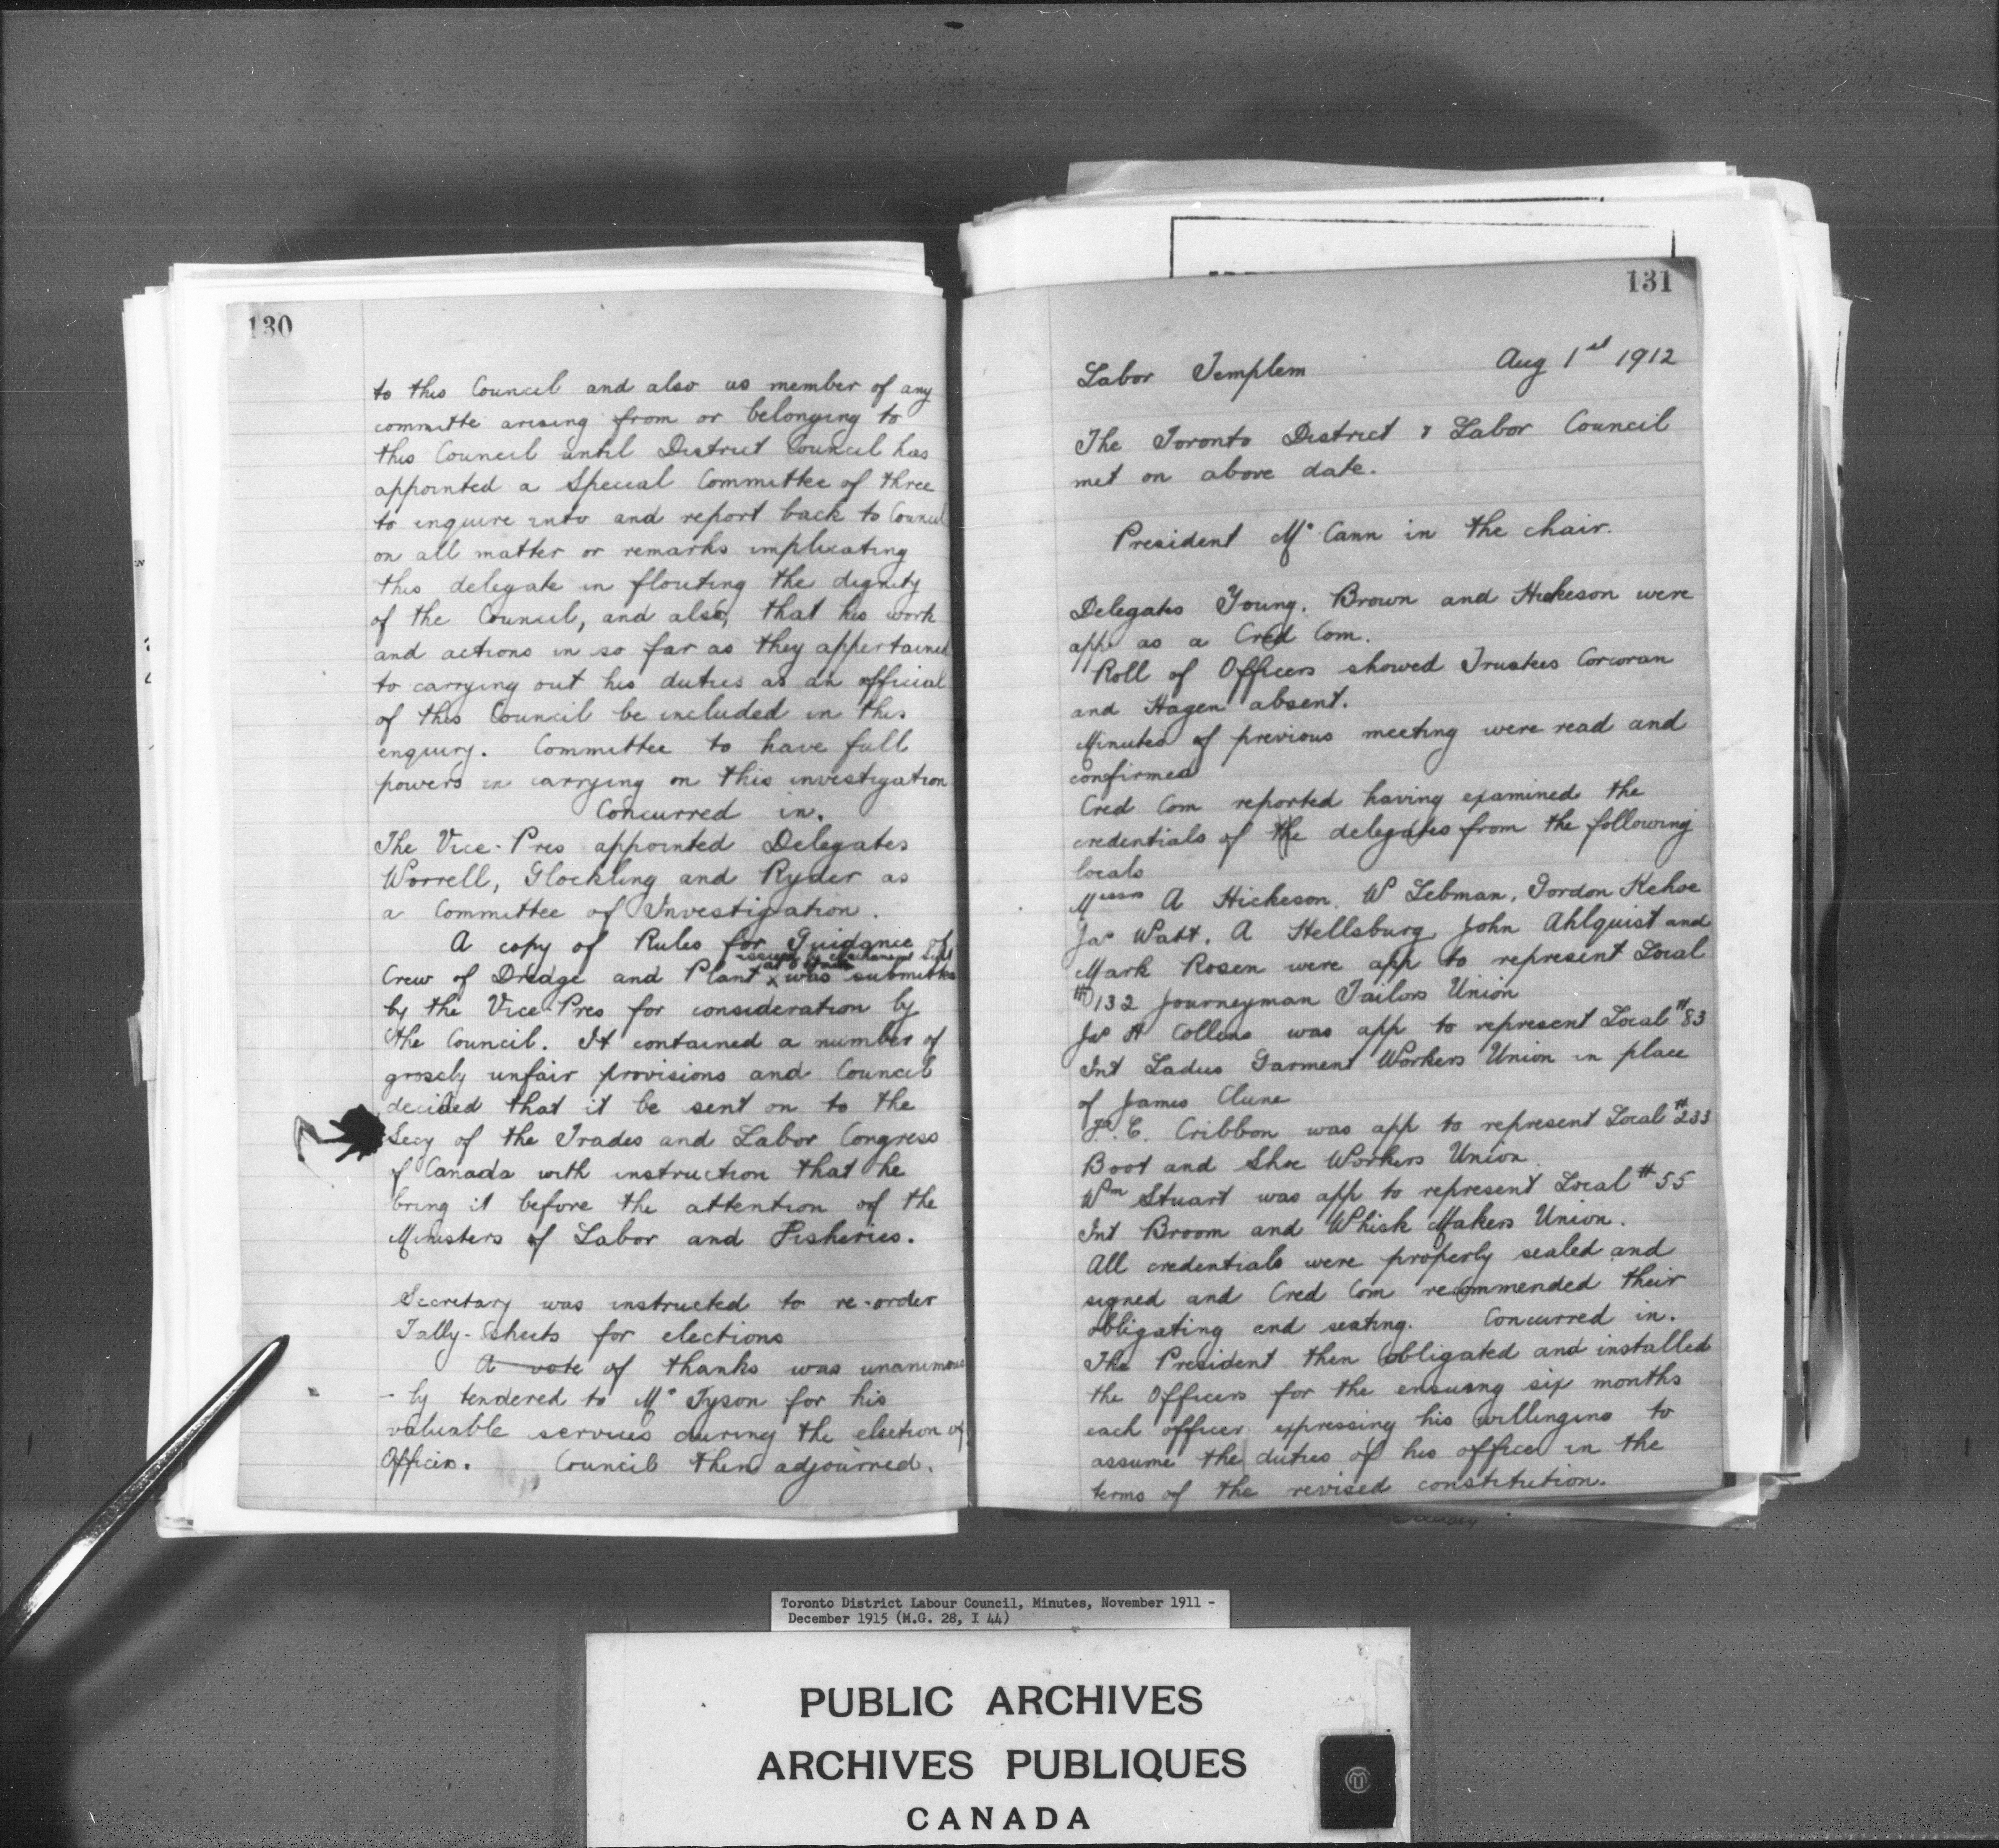 130
to this Council and also as member of any
committe arising from or belonging to
this Council until District Council has
appointed a Special Committee of three
to inquire into and report back to Council
on all matter or remarks implicating
this delegate in flouting the dignity
of the Council, and also, that his work
and actions in so far as they appertained
to carrying out his duties as an official
of this Council be included in this
enquiry. Committee to have full
powers in carrying on this investigation
Concurred in.
The Vice-Pres appointed Delegates
Worrell, Glockling and Ryder as
a Committee of Investigation.
A copy of Rules for Guidance of
issued by
Crew of Dredge and Plant x was submitted
by the Vice-Pres for consideration by
the Council. It contained a number of
grosely unfair provisions and Council
decided that it be sent on to the
Secy of the Trades and Labor Congress
of Canada with instruction that he
bring it before the attention of the
Ministers of Labor and Fisheries.
Secretary was instructed to re-order
Tally-sheets for elections
A vote of thanks was unanimous
-ly tendered to Mr Tyson for his
valuable services during the election of
Officers. Council then adjourned.
131
Labor Templem Aug 1st 1912
The Toronto District & Labor Council
met on above date.
President Mc Cann in the chair.
Delegates Young, Brown and Hickeson were
app as a Cred Com.
Roll of Officers showed Trustees Corcoran
and Hagen absent.
Minutes of previous meeting were read and
confirmed
Cred Com reported having examined the
credentials of the delegates from the following
locals
Messrs A Hickeson, W Lebman, Gordon Kehoe
Jas Watt, A Hellsburg, John Ahlquist and
Mark Rosen were app to represent Local
#132 Journeyman Tailors Union
Jas H Collens was app to represent Local #83
Int Ladies Garment Workers Union in place
of James Clune
C. Cribbon was app to represent Local #233
Boot and Shoe Workers Union
Wm Stuart was app to represent Local #55
Int Broom and Whisk Makers Union.
All credentials were properly sealed and
signed and Cred Com recommended their
obligating and seating. Concurred in.
The President then obligated and installed
the Officers for the ensuing six months
each officer expressing his willingins to
assume the duties of his office in the
terms of the revised constitution.
Toronto District Labour Council, Minutes, November 1911 -
December 1915 (M.G. 28, I 44)
PUBLIC ARCHIVES
ARCHIVES PUBLIQUES
CANADA